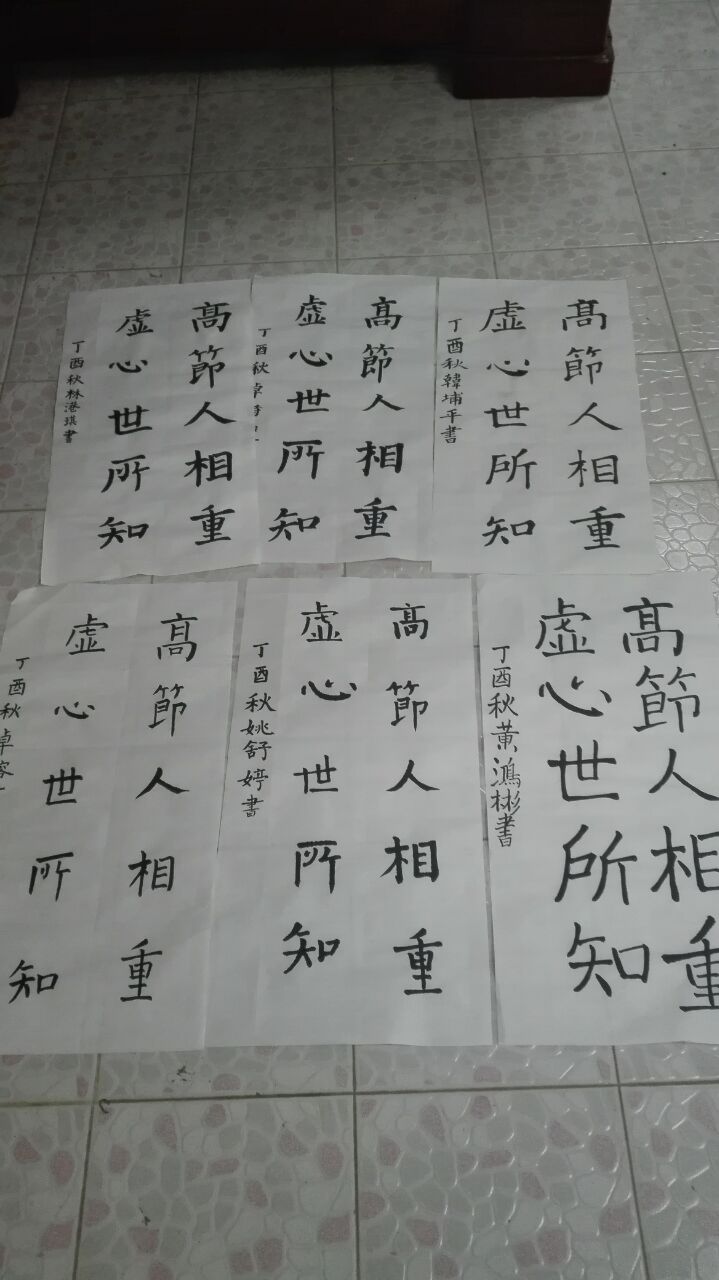 髙節人相重
虛心世所知
丁酉秋林港琪書
髙節人相重
虛心世所知
丁酉秋
髙節人相重
虛心世所知
丁酉秋韓埔平書
髙節人相重
虛心世所知
丁酉秋卓容
髙節人相重
虛心世所知
丁酉秋姚舒婷書
髙節人相重
虛心世所知
丁酉秋黄鴻彬書